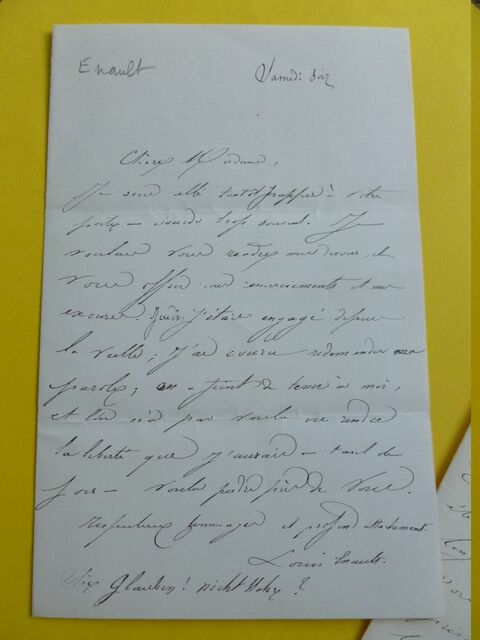 Enault
Samedi soir
Chère Madame,
Je suis allé tantôt frapper à votre
porte — sourde trop souvent. Je
voulais vous rendre mes devoirs, et
vous offrir mes remerciements et mes
excuses. Jeudi, j'étais engagé depuis
la veille; j'ai couru redemander ma
parole; on a feint de tenir à moi,
et l'on n'a pas voulu me rendre
la liberté que j'aurais — tant de
fois — voulu perdre près de vous.
Respectueux hommages et profond attachement.
Louis Enault.
Sie Glauben! nicht Wahr?